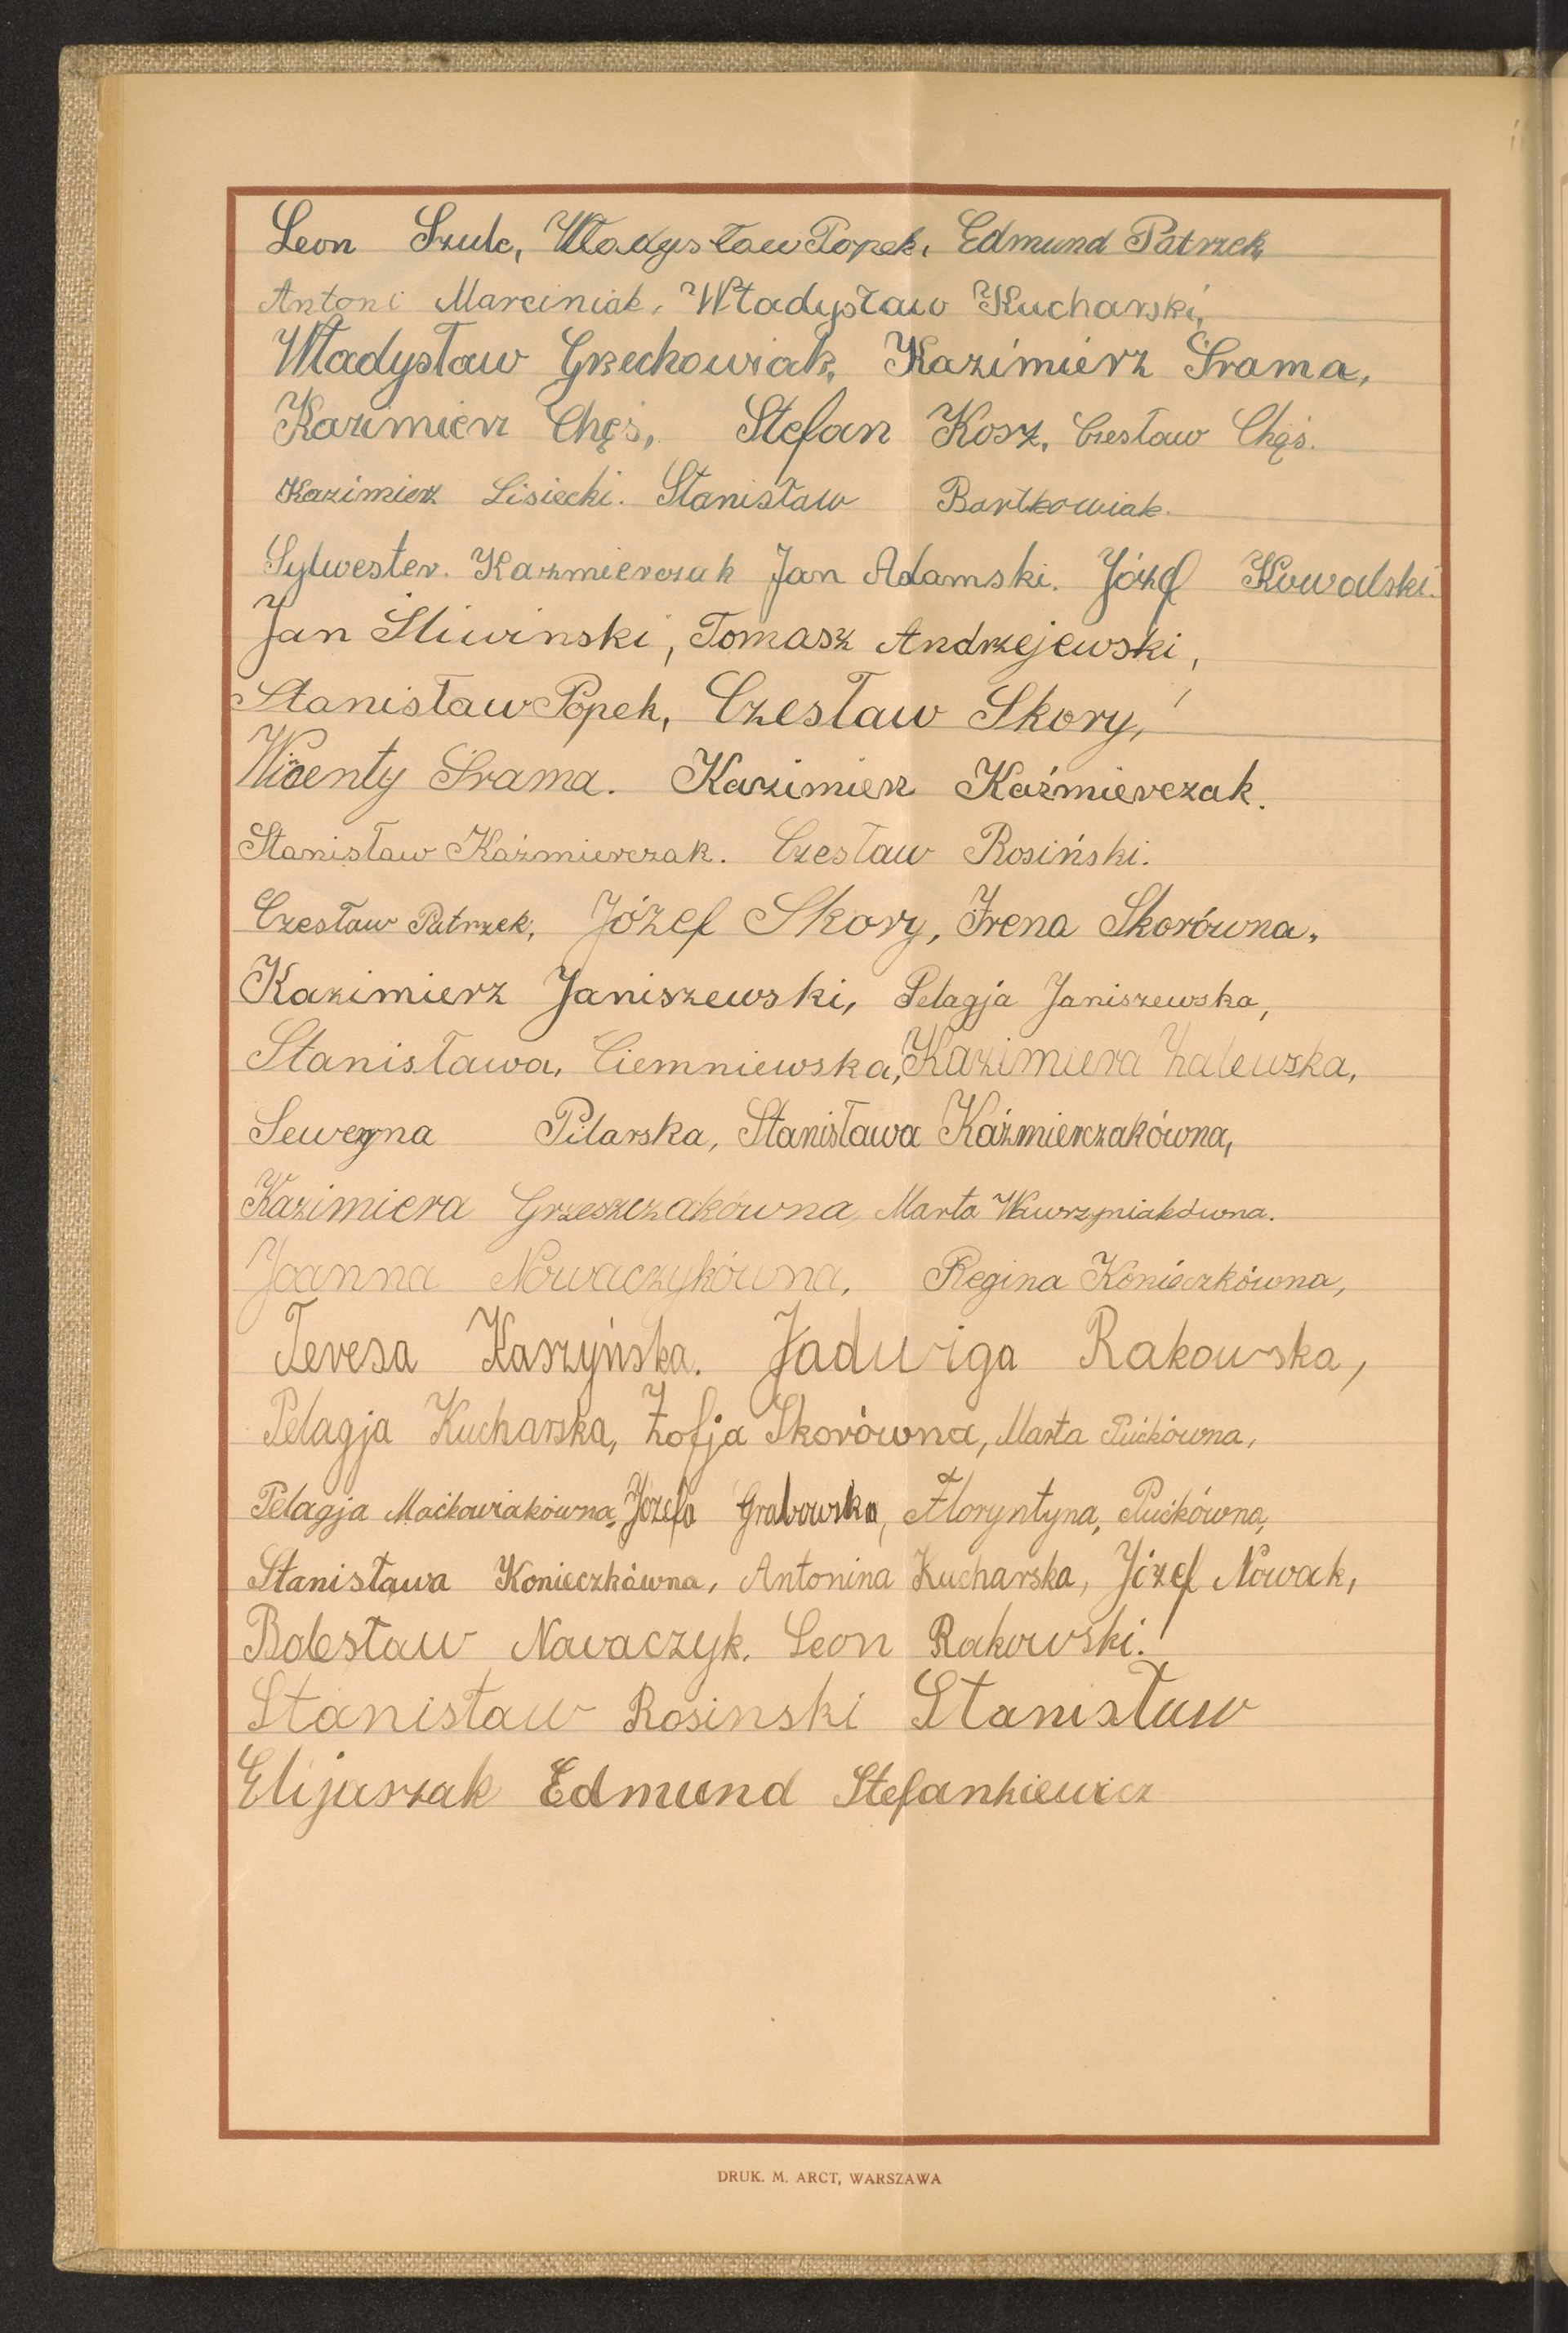 Leon Szulc, Władysław Popek, Edmund Patrzek,
Antoni Marciniak, Władysław Kucharski,
Władysław Grzechowiak, Kazimierz Śrama,
Kazimierz Chęś, Stefan Kosz, Czesław Chęś.
Kazimierz Lisiecki. Stanisław Bartkowiak.
Sylwester. Kazmierczak Jan Adamski. Józef Kowalski.
Jan Śliwinski, Tomasz Andrzejewski,
Stanisław Popek, Czesław Skory,
Wicenty Śrama. Kazimierz Kaźmierczak.
Stanisław Kaźmierczak. Czesław Rosiński.
Czesław Patrzek, Józef Skory, Irena Skorówna,
Kazimierz Janiszewski, Pelagja Janiszewska,
Stanisława, Ciemniewska, Kazimiera Zalewska,
Seweryna Pilarska, Stanisława Kaźmierczakówna,
Kazimiera Grzeszczakówna, Marta Wawrzyniakówna.
Joanna Nowaczykówna, Regina Konieczkówna,
Teresa Kaszyńska. Jadwiga Rakowska,
Pelagja Kucharska, Zofja Skorówna, Marta Pućkówna,
Pelagja Maćkowiakówna, Józefa Grabowska, Floryntyna, Pućkówna,
Stanisława Konieczkówna, Antonina Kucharska, Józef Nowak,
Bolesław Nowaczyk. Leon Rakowski!
Stanisław Rosinski Stanisław
Elijaszak Edmund Stefankiewicz
DRUK. M. ARCT, WARSZAWA